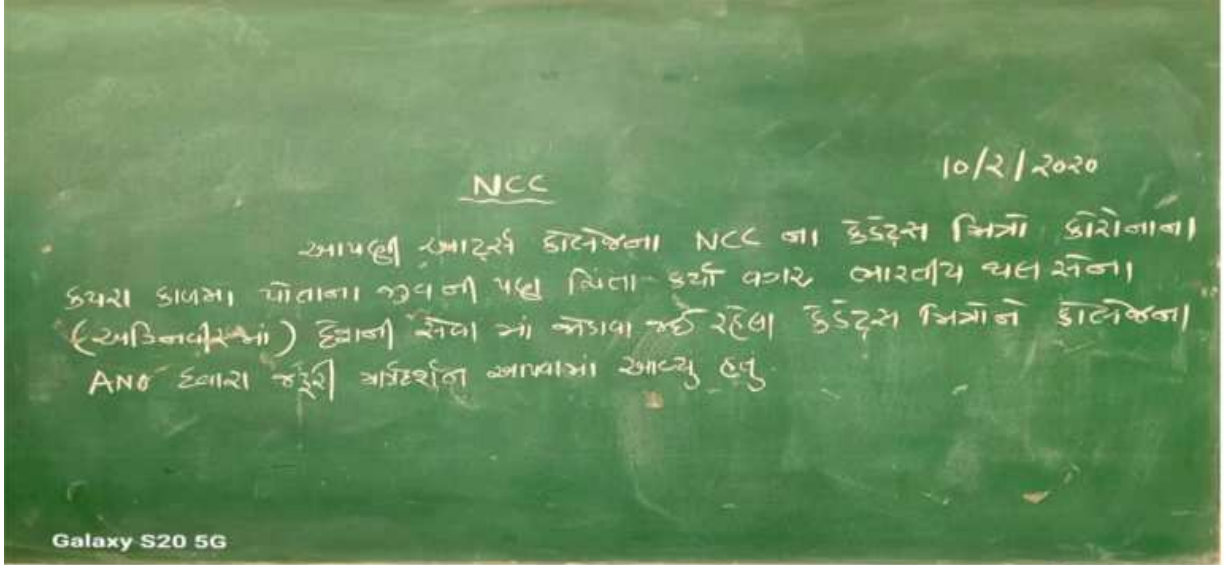 ૧૦/૨/૨૦૨૦
NCC
આપણી આર્ટ્સ કોલેજના NCC ના કેડેટ્સ મિત્રો કોરોનાના
કપરા કાળમા પોતાના જીવ ની પણ ચિંતા કર્યા વગર ભારતીય થલ સેના
(અગ્નિવીરમાં) દેશની સેવા માં જોડાવા જઈ રહેલા કેડેટ્સ મિત્રોને કોલેજના
ANO દ્વારા જરૂરી માર્ગદર્શન આપવામાં આવ્યુ હતુ.
Galaxy S20 5G